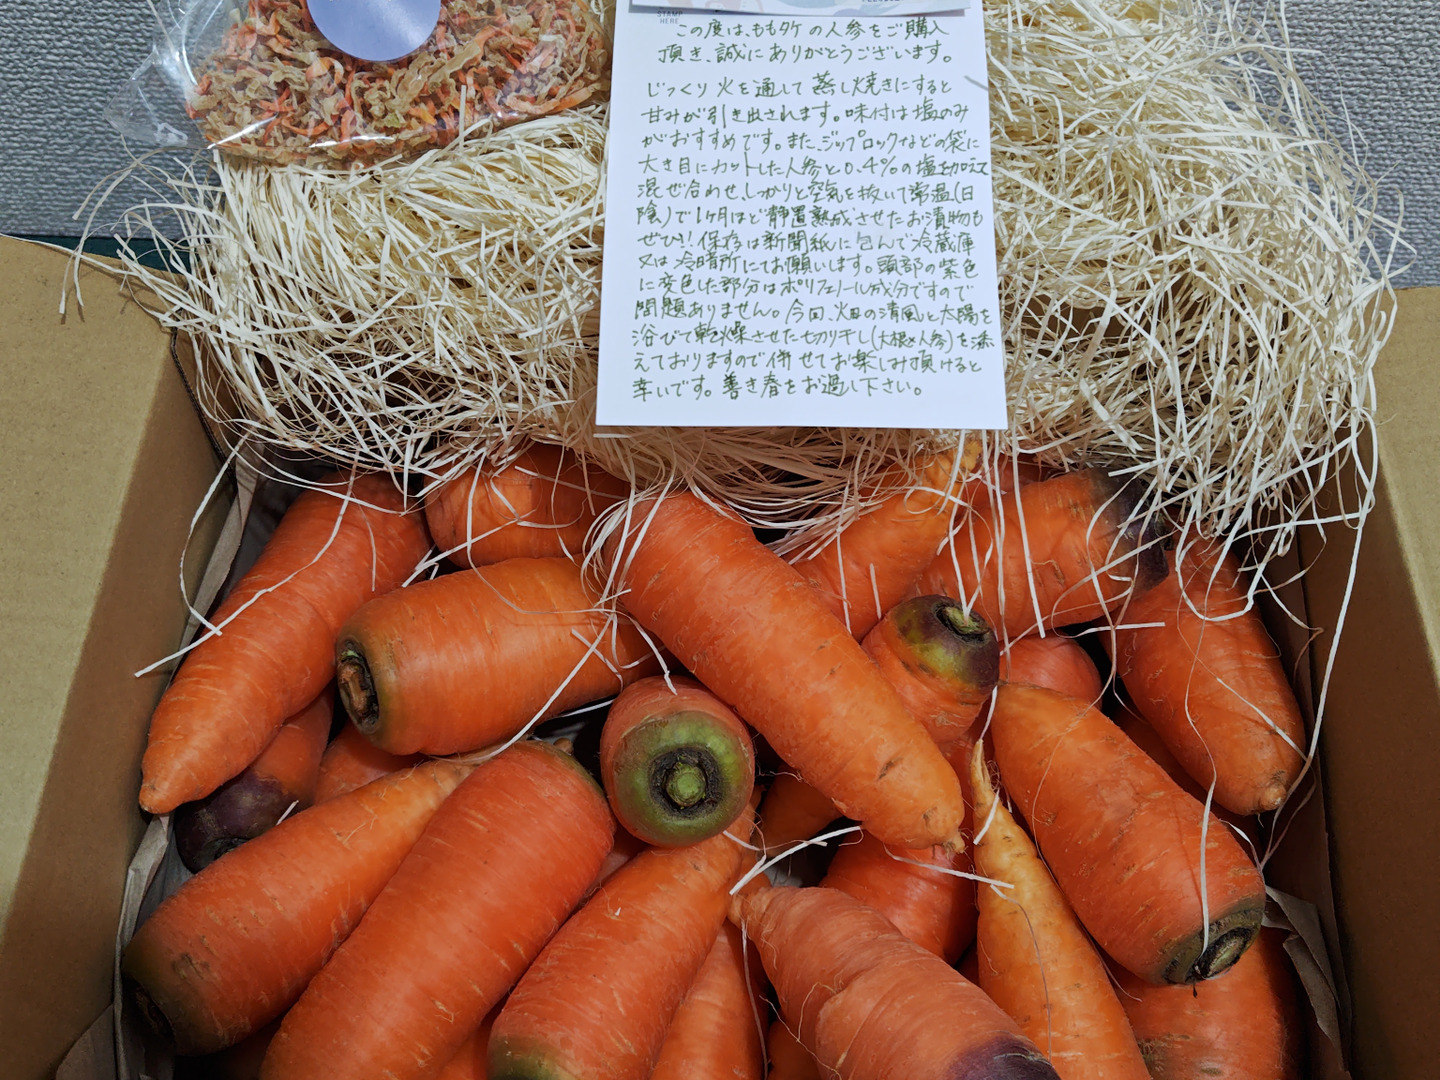 STAMP
HERE
この度は、ももタケの人参をご購入
頂き、誠にありがとうございます。
じっくり火を通して蒸し焼きにすると
甘みが引き出されます。味付は塩のみ
がおすすめです。また、ジップロックなどの袋に
大き目にカットした人参と0.4%の塩を加えて
混ぜ合わせ、しっかりと空気を抜いて常温(日
陰)で1ヶ月ほど静置熟成させたお漬物も
ぜひ!!保存は新聞紙に包んで冷蔵庫
又は冷暗所にてお願いします。頭部の紫色
に変色した部分はポリフェノール成分ですので
問題ありません。今回、畑の清風と太陽を
浴びて乾燥させた切り干し(大根&人参)を添
えておりますので併せてお楽しみ頂けると
幸いです。善き春をお過し下さい。